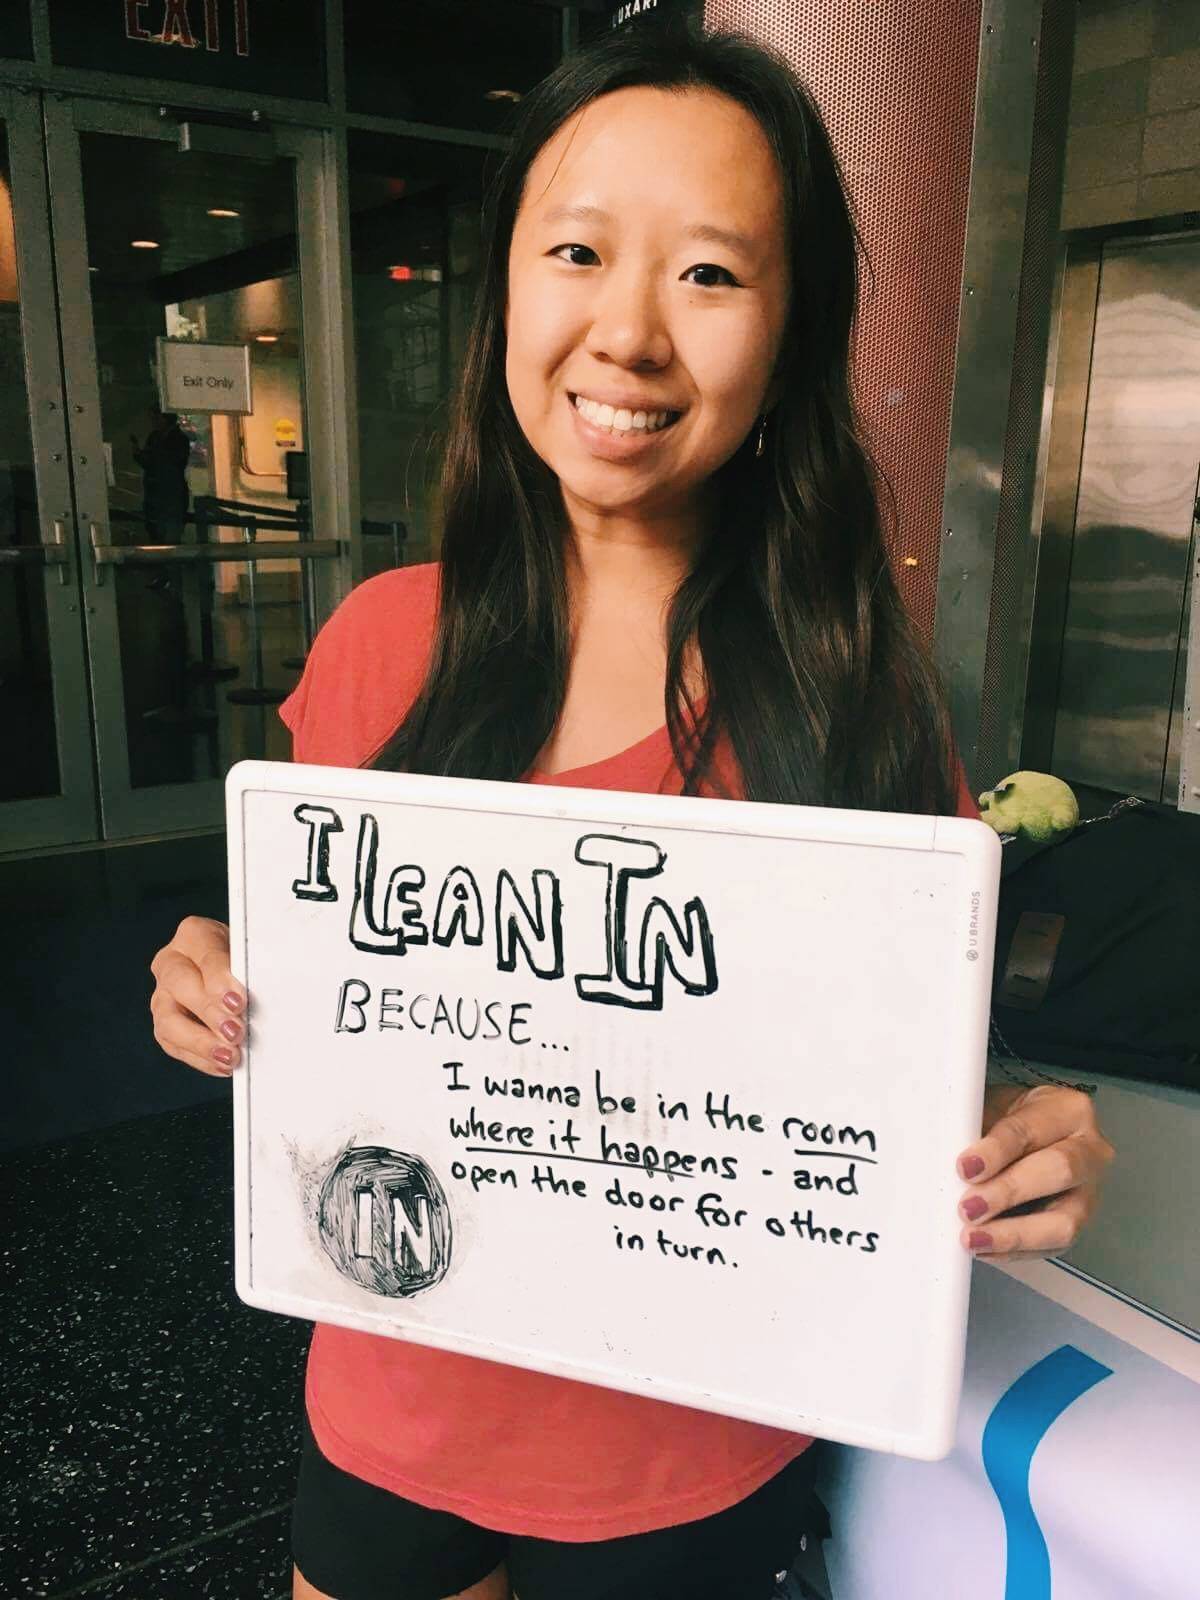 EXIT
LUXAR
Exit Only
I LEAN IN
BECAUSE...
I wanna be in the room
where it happens - and
open the door for others
in turn.
IN
U BRANDS